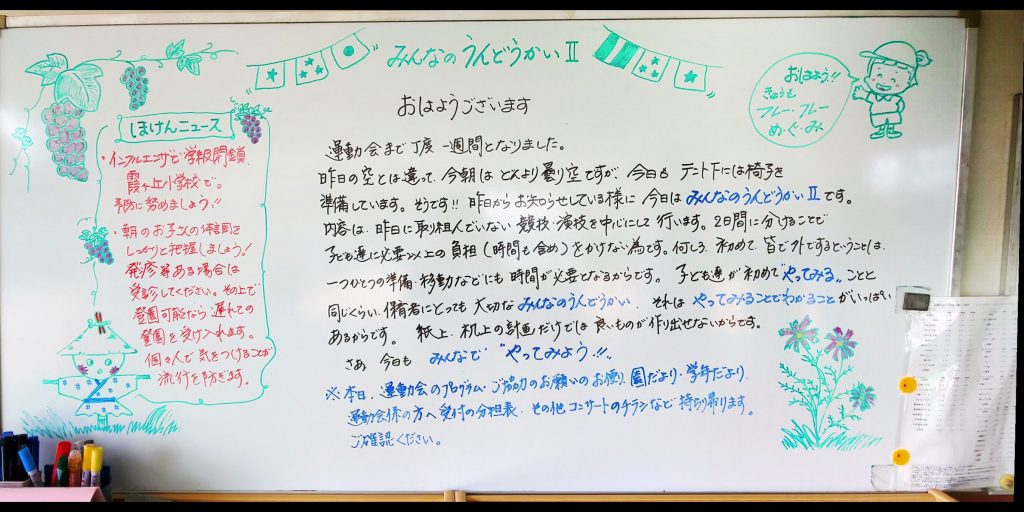 みんなのうんどうかいⅡ
おはよう!!
きょうも
フレー・フレー
め・ぐ・み
おはようございます
ほけんニュース
・インフルエンザで学級閉鎖
霞ヶ丘小学校で。
予防に努めましょう!!
・朝のお子さんの体調を
しっかりと把握しましょう!
発疹等ある場合は
受診してください。その上で
登園可能なら遅れての
登園を受け入れます。
個々人で気をつけることが
流行を防ぎます。
運動会まで丁度一週間となりました。
昨日の空とは違って、今朝はどんより曇り空ですが、今日もテント下には椅子を
準備しています。そうです!!昨日からお知らせしている様に今日はみんなのうんどうかいⅡです。
内容は、昨日に取り組んでいない競技・演技を中心にして行います。2日間に分けることで
子ども達に必要以上の負担(時間も含め)をかけない為です。何しろ、初めて、皆で外でするということは、
一つひとつの準備・移動などにも時間が必要となるからです。子ども達が初めて"やってみる"ことと
同じくらい、保育者にとっても大切なみんなのうんどうかい、それはやってみることでわかることがいっぱい
あるからです。紙上、机上の計画だけでは良いものが作り出せないからです。
さあ、今日もみんなで"やってみよう!!"
※本日、運動会のプログラム・ご協力のお願いのお便り、園だより・学年だより、
運動会係の方へ受付の分担表、その他コンサートのチラシなど持ち帰ります。
ご確認ください。